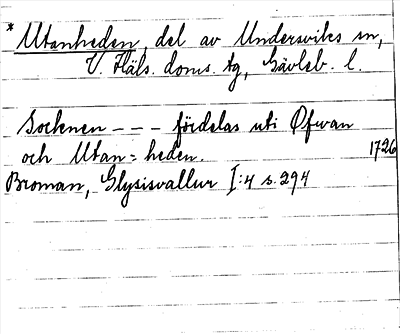 * Utanheden, del av Undersviks sn,
V. Häls. doms. tg, Gävleb. l.
Socknen - - - fördelas uti Øfwan
och Utan = heden. 1726
Broman, Glysisvallur I:4 s. 294